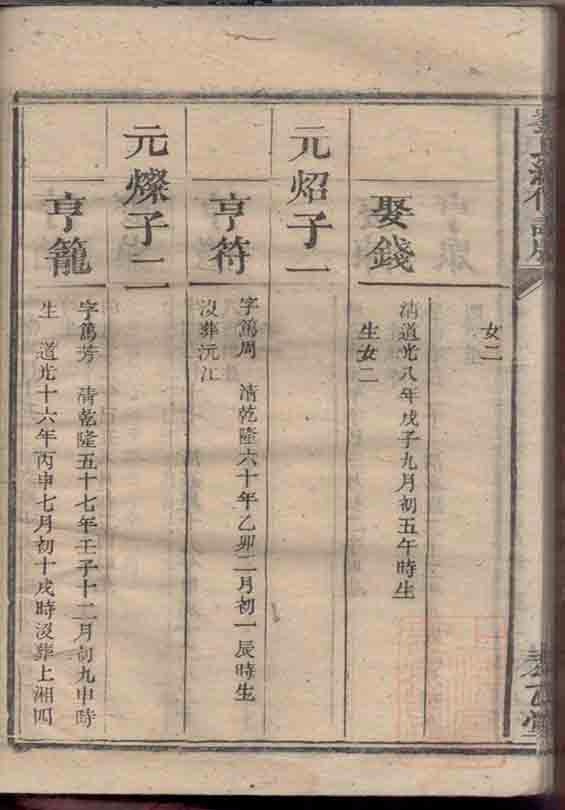 女二
娶錢
清道光八年戊子九月初五午時生
生女二
元炤子一
亨符
字篤周 清乾隆六十年乙卯二月初一辰時生
沒葬沅江
元燦子二
亨籠
字篤芳 清乾隆五十七年壬子十二月初九申時
生 道光十六年丙申七月初十戌時沒葬上湘四